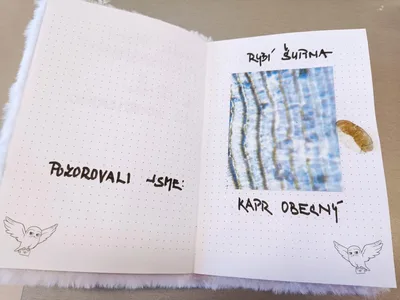 POZOROVALI JSME:
RYBÍ ŠUPINA
KAPR OBECNÝ